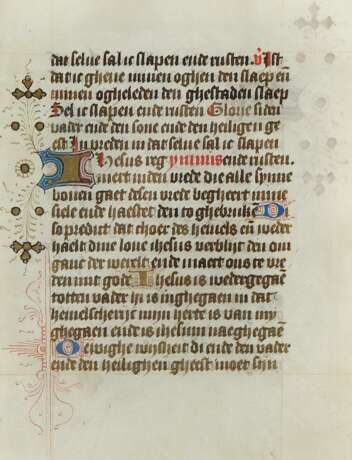 dat selue sal ic slapen ende rusten. V Ist
dat ic gheue minen oghen den slaep en̄
minen oghеleden den ghestaden slaep
Sel ic slapen ende rusten Glorie si den
vader ende den sone ende den heiligen ge
est In vreden in dat selue sal ic slapen
ende rusten. ymnus
Ihesus
inert in den vrede die alle synne
bouen gaet desen vrede begheert mine
siele ende haestet den to ghebruke
so predict dat choer des hemels en̄ weder
haelt dine loue ihesus verblijt den om
ganc der werelt ende maect ons te vre
den mit gode Ihesus is wedergegaen
totten vader hi is inghegaen in dat
hemelscherijc mijn herte is van my
ghegaen ende is ihesum naeghegaen
O ewighe wijsheit di ende den vader
ende den heilighen gheest moet sijn